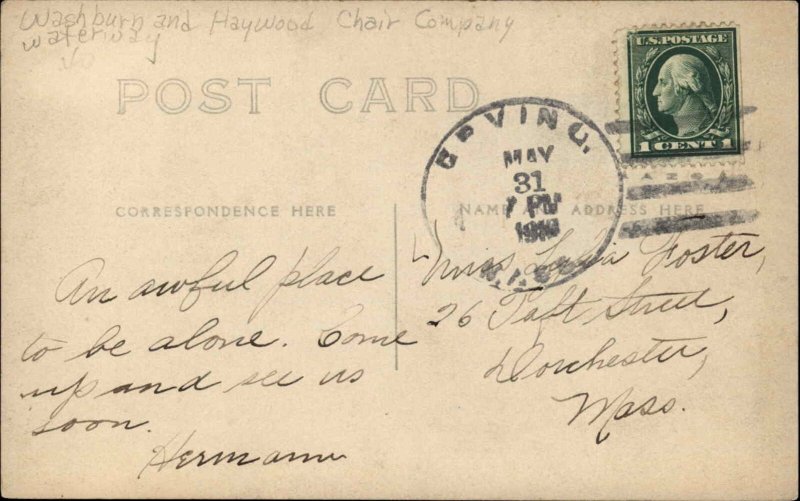 Washburn and Haywood Chair Company
waterway
POST CARD
U.S. POSTAGE
1 CENT 1
ERVING.
MAY
31
PM
MASS.
CORRESPONDENCE HERE
NAME AND ADDRESS HERE
An awful place
to be alone. Come
up and see us
soon.
Hermann
Miss Foster,
26 Taft Street,
Dorchester,
Mass.